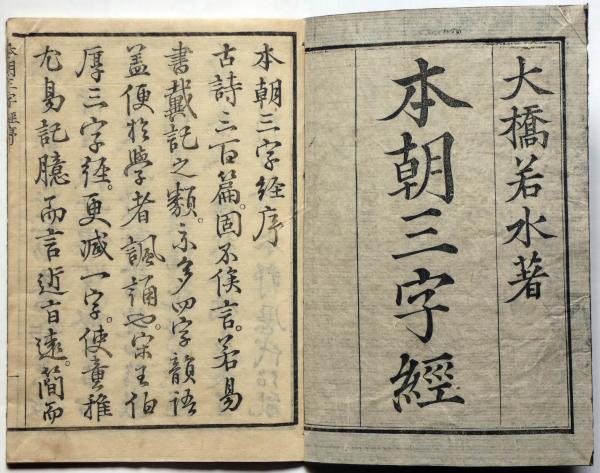 大橋若水著
本朝三字經
本朝三字經序
古詩三百篇。固不俟言。若易
書戴記之類。亦多四字韻語
蓋便於學者諷誦也。宋王伯
厚三字經。更減一字。使童稚
尤易記臆。而言近旨遠。簡而
本朝三字經序
一